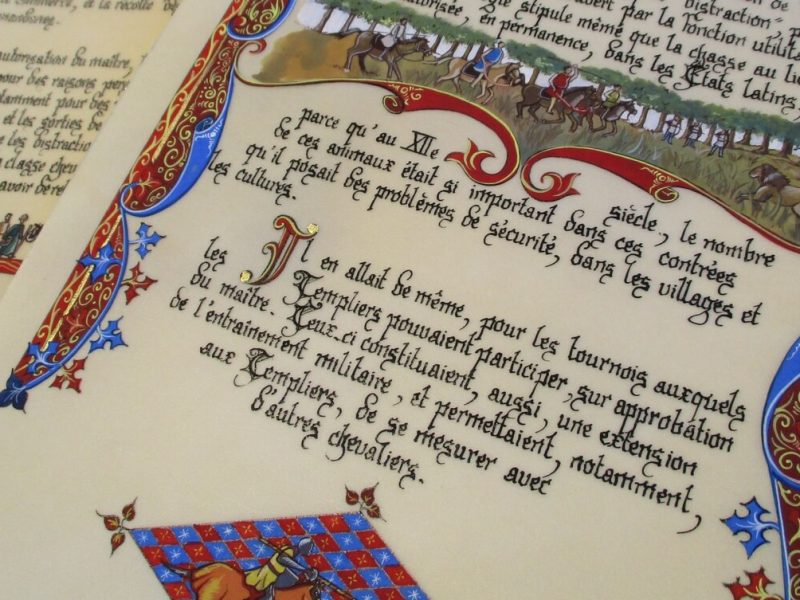 et la récolte
autorisation du maître,
pour des raisons
notamment pour des
et les sorties de
les distraction
classe
avoir
par la fonction
stipule même que la chasse au
en permanence, dans les États latins,
parce qu'au XIIe siècle, le nombre
de ces animaux était si important dans ces contrées
qu'il posait des problèmes de sécurité, dans les villages et
les cultures.
Il en allait de même, pour les tournois auxquels
les Templiers pouvaient participer, sur approbation
du maître. Ceux-ci constituaient, aussi, une extension
de l'entrainement militaire, et permettaient, notamment,
aux Templiers, de se mesurer avec
d'autres chevaliers.